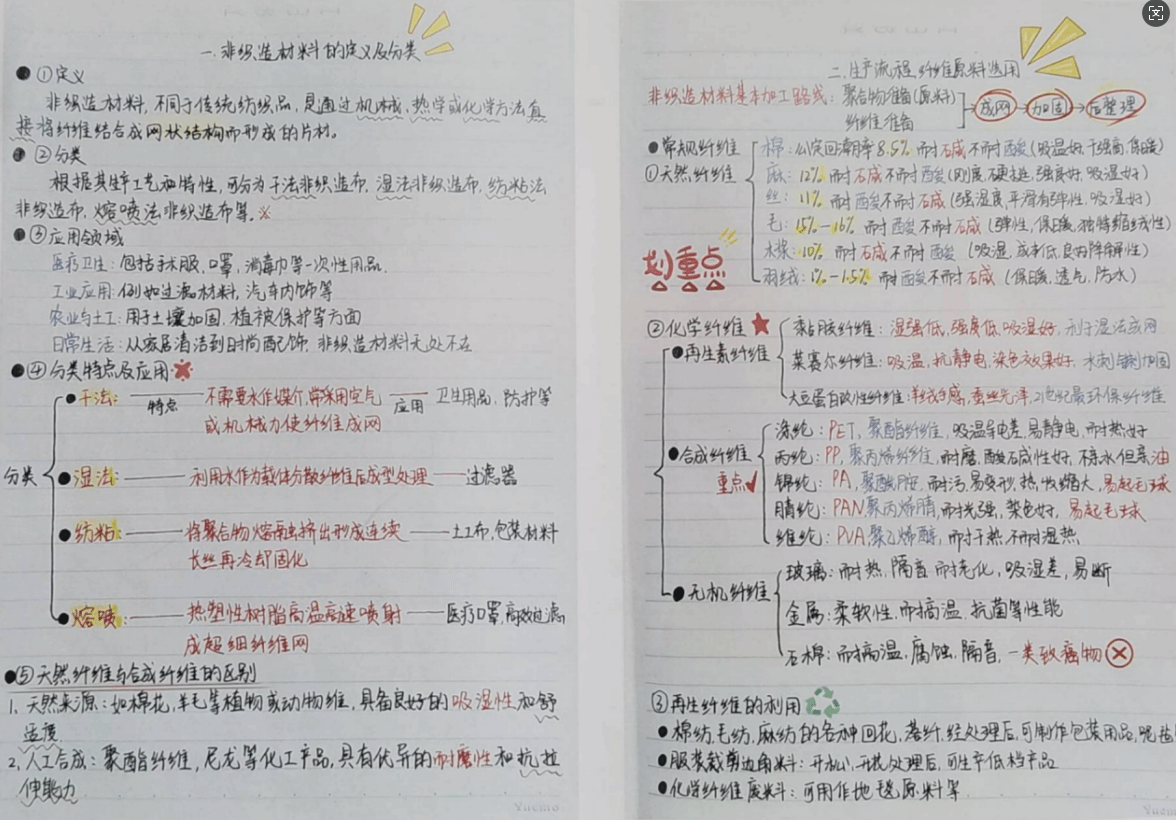 一.非织造材料的定义及分类
● ①定义
非织造材料,不同于传统纺织品,是通过机械,热学或化学方法直
接将纤维结合成网状结构而形成的片材。
● ②分类
根据其生产工艺和特性,可分为干法非织造布,湿法非织造布,纺粘法
非织造布,熔喷法非织造布等。※
● ③应用领域
医疗卫生:包括手术服,口罩,消毒巾等一次性用品.
工业应用:例如过滤材料,汽车内饰等
农业与土工:用于土壤加固,植被保护等方面
日常生活:从家居清洁到时尚配饰,非织造材料无处不在
● ④分类特点及应用
分类
● 干法: 特点 不需要水作媒介,常采用空气 应用 卫生用品,防护等
或机械力使纤维成网
● 湿法: 利用水作为载体分散纤维后成型处理 过滤器
● 纺粘: 将聚合物熔融挤出形成连续 土工布,包装材料
长丝再冷却固化
● 熔喷: 热塑性树脂高温高速喷射 医疗口罩,高效过滤
成超细纤维网
● ⑤天然纤维与合成纤维的区别
1、天然来源:如棉花,羊毛等植物或动物维,具备良好的吸湿性和舒
适度
2、人工合成:聚酯纤维,尼龙等化工产品,具有优异的耐磨性和抗拉
伸能力
Yuemo
二.生产流程,纤维原料选用
非织造材料基本加工路线: 聚合物准备(原料) 纤维准备 → 成网 → 加固 → 后整理
● 常规纤维
①天然纤维
棉:公定回潮率8.5% 耐碱不耐酸(吸湿好,干强高,保暖)
麻:12% 耐碱不耐酸(刚度硬挺,强度好,吸湿好)
丝:11% 耐酸不耐碱(强湿度,平滑有弹性,吸湿好)
毛:15%-16% 耐酸不耐碱(弹性,保暖,独特缩绒性)
木棉:10% 耐碱不耐酸 (吸湿,成本低,良好降解性)
羽绒:1%-1.5% 耐酸不耐碱 (保暖,透气,防水)
划重点
②化学纤维
● 再生素纤维
黏胶纤维:湿强低,强度低,吸湿好,利于湿法成网
莱赛尔纤维:吸温,抗静电,染色效果好,水刺与针刺加固
大豆蛋白改性纤维:羊绒手感,蚕丝光泽,21世纪最环保纤维
● 合成纤维
重点✓
涤纶:PET,聚酯纤维,吸湿导电差,易静电,耐热好
丙纶:PP,聚丙烯纤维,耐磨,酸石咸性好,不亲水但亲油
锦纶:PA,聚酰胺,耐污,易变形,热收缩大,易起毛球
腈纶:PAN,聚丙烯腈,耐光强,染色好,易起毛球
维纶:PVA,聚乙烯醇,耐干热不耐湿热
● 无机纤维
玻璃:耐热,隔音,耐老化,吸湿差,易断
金属:柔软性,耐高温.抗菌等性能
石棉:耐高温,腐蚀,隔音,一类致癌物
③再生纤维的利用
● 棉纺,毛纺,麻纺的各种回花,落纤,经处理后,可制作包装用品,
● 服装裁剪边角料:开松、开花处理后,可生产低档产品
● 化学纤维废料:可用作地毯原料等